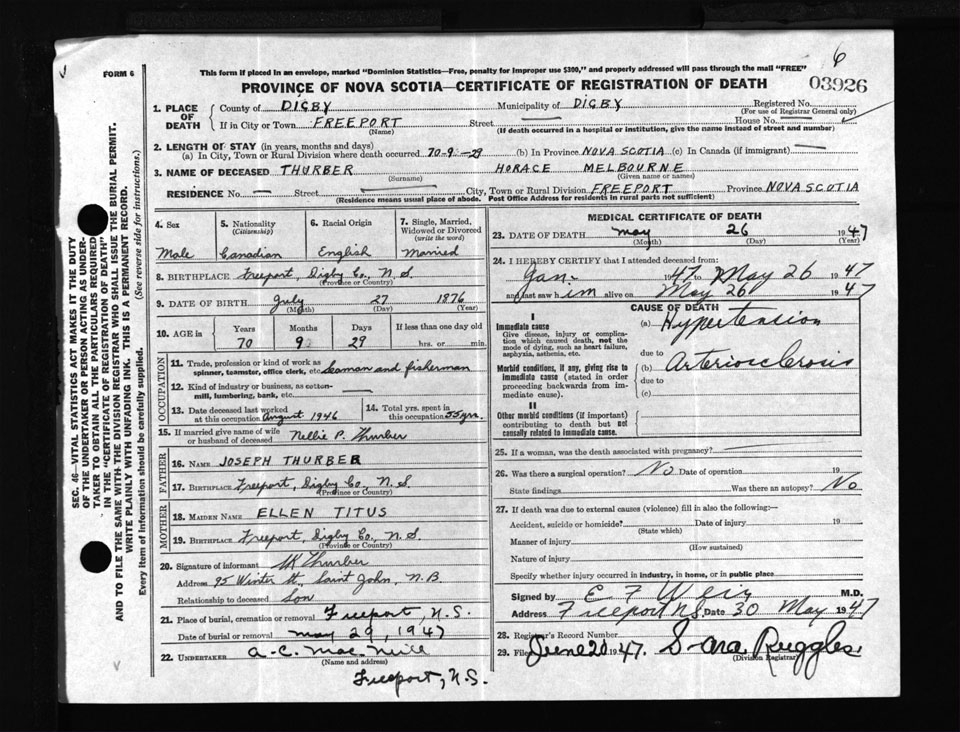 6
FORM 6
This form if placed in an envelope, marked "Dominion Statistics—Free, penalty for improper use $300," and properly addressed will pass through the mail "FREE"
PROVINCE OF NOVA SCOTIA—CERTIFICATE OF REGISTRATION OF DEATH
03926
SEC. 46—VITAL STATISTICS ACT MAKES IT THE DUTY
OF THE UNDERTAKER OR PERSON ACTING AS UNDER-
TAKER TO OBTAIN ALL THE PARTICULARS REQUIRED
IN THE "CERTIFICATE OF REGISTRATION OF DEATH"
AND TO FILE THE SAME WITH THE DIVISION REGISTRAR WHO SHALL ISSUE THE BURIAL PERMIT.
WRITE PLAINLY WITH UNFADING INK. THIS IS A PERMANENT RECORD.
Every item of Information should be carefully supplied. (See reverse side for instructions.)
1. PLACE OF DEATH
County of DIGBY Municipality of DIGBY Registered No.
(For use of Registrar General only)
If in City or Town FREEPORT Street House No.
(Name) (If death occurred in a hospital or institution, give the name instead of street and number)
2. LENGTH OF STAY (in years, months and days)
(a) In City, Town or Rural Division where death occurred 70-9-29 (b) In Province NOVA SCOTIA (c) In Canada (if immigrant) —
3. NAME OF DECEASED THURBER HORACE MELBOURNE
(Surname) (Given name or names)
RESIDENCE No. — Street — City, Town or Rural Division FREEPORT Province NOVA SCOTIA
(Residence means usual place of abode. Post Office Address for residents in rural parts not sufficient)
4. Sex
Male
5. Nationality (Citizenship)
Canadian
6. Racial Origin
English
7. Single, Married, Widowed or Divorced (write the word)
Married
8. BIRTHPLACE Freeport, Digby Co., N.S.
(Province or Country)
9. DATE OF BIRTH July 27 1876
(Month) (Day) (Year)
10. AGE in Years Months Days If less than one day old
70 9 29 hrs. or min.
OCCUPATION
11. Trade, profession or kind of work as
spinner, teamster, office clerk, etc. Seaman and fisherman
12. Kind of industry or business, as cotton-
mill, lumbering, bank, etc.
13. Date deceased last worked
at this occupation August 1946
14. Total yrs. spent in
this occupation 55 yrs.
15. If married give name of wife
or husband of deceased Nellie P. Thurber
FATHER
16. NAME JOSEPH THURBER
17. BIRTHPLACE Freeport, Digby Co, N.S.
(Province or Country)
MOTHER
18. MAIDEN NAME ELLEN TITUS
19. BIRTHPLACE Freeport, Digby Co., N.S.
(Province or Country)
20. Signature of informant Thurber
Address 95 Winter St, Saint John, N.B.
Relationship to deceased Son
21. Place of burial, cremation or removal Freeport, N.S.
Date of burial or removal may 29, 1947
22. UNDERTAKER A-C. Mac
(Name and address)
Freeport, N.S.
MEDICAL CERTIFICATE OF DEATH
23. DATE OF DEATH May 26 1947
(Month) (Day) (Year)
24. I HEREBY CERTIFY that I attended deceased from:
Jan- 1947 to May 26 1947
and last saw him alive on May 26 1947
CAUSE OF DEATH
I
Immediate cause
Give disease, injury or complica-
tion which caused death, not the
mode of dying, such as heart failure,
asphyxia, asthenia, etc.
(a) Hypertension
due to
Morbid conditions, if any, giving rise to
immediate cause (stated in order
proceeding backwards from im-
mediate cause).
(b) Arteriosclerosis
due to
(c)
II
Other morbid conditions (if important)
contributing to death but not
causally related to immediate cause.
25. If a woman, was the death associated with pregnancy?
26. Was there a surgical operation? No Date of operation 19
State findings Was there an autopsy? No
27. If death was due to external causes (violence) fill in also the following:—
Accident, suicide or homicide? Date of injury 19
(State which)
Manner of injury
(How sustained)
Nature of injury
Specify whether injury occurred in industry, in home, or in public place
Signed by E F Weir M.D.
Address Freeport NS Date 30 May 1947
28. Registrar's Record Number
29. Filed June 20 1947. Sara Ruggles.
(Division Registrar)